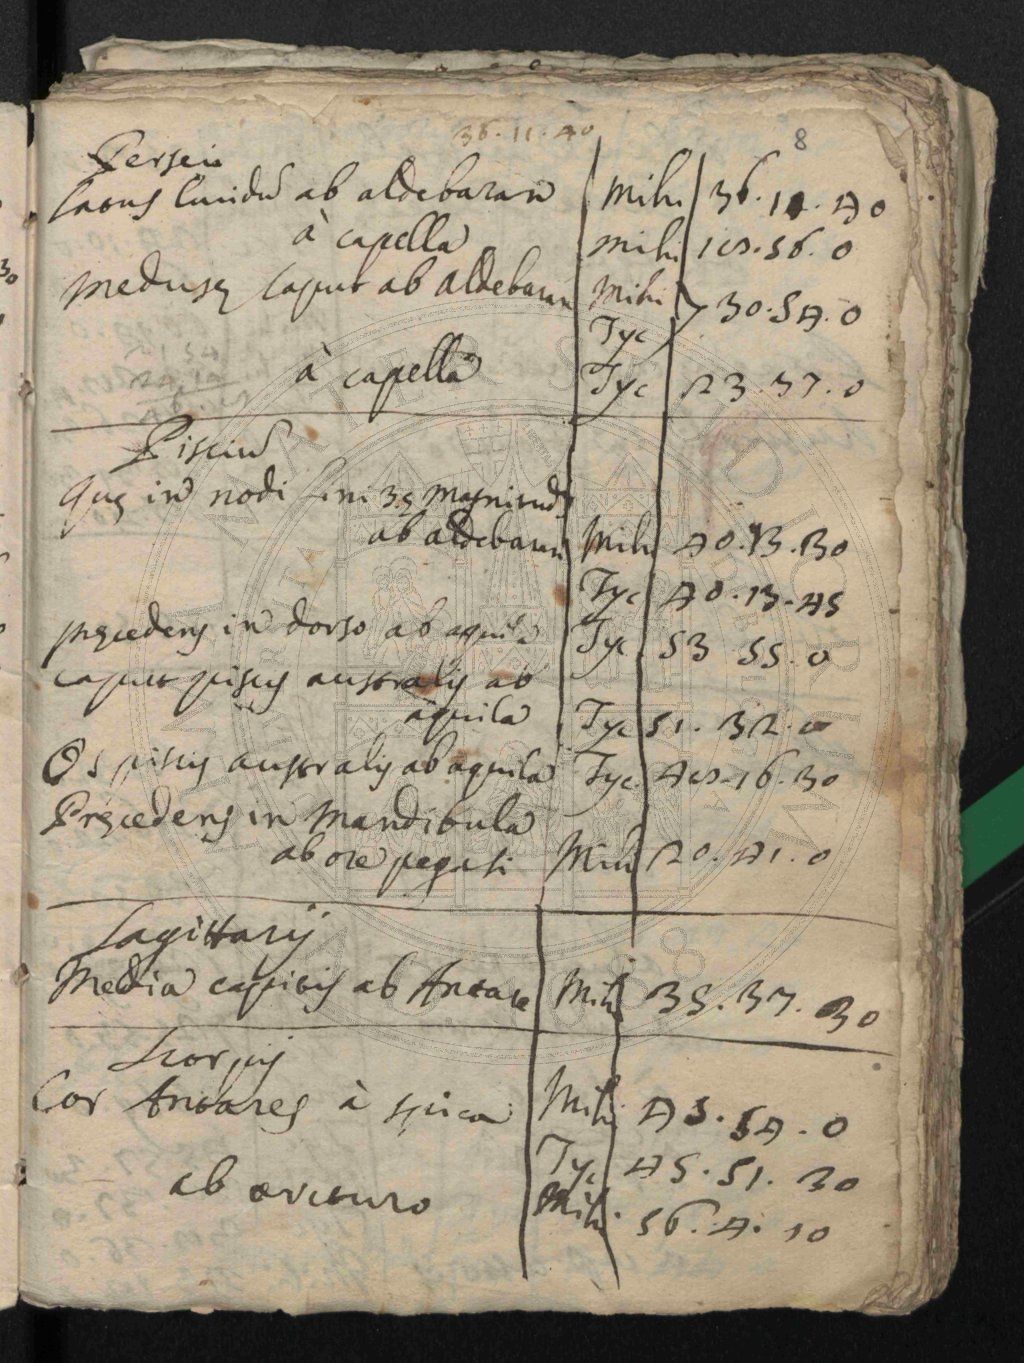 36.11.40
8
Persei
latus lucidū ab aldebaran Mihi 36.11.40
à capella mihi 18.56.0
Medusę caput ab Aldebaran Mihi 30.54.0
Tyc
à capella Tyc 23.37.0
Pisciū
Quę in nodi lini 3ę magnitud.
ab aldebaran Mihi 40.13.30
Tyc 40.13.45
pręcedens in dorso ab aquila Tyc 53 55.0
caput piscis australis ab
aquila Tyc 51.32.0
Os piscis australis ab aquila Tyc 48.16.30
Pręcedens in Mandibula
ab ore pegasi Mihi 20.41.0
Sagittarij
Media capitis ab Antare Mihi 35.37.30
Scorpij
Cor Antares à spica Mihi 45.54.0
Tyc 45.51.30
ab arcturo Mihi 56.4.10